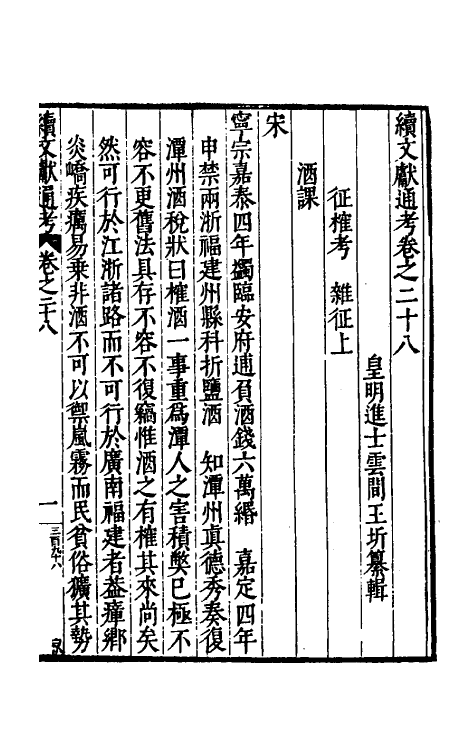 續文獻通考卷之二十八
皇明進士雲間王圻纂輯
征榷考　雜征上
酒課
宋
寧宗嘉泰四年蠲臨安府逋負酒錢六萬緡　嘉定四年
申禁兩浙福建州縣科折鹽酒　知潭州眞德秀奏復
潭州酒稅狀曰榷酒一事重爲潭人之害積獘已極不
容不更舊法具存不容不復竊惟酒之有榷其來尚矣
然可行於江浙諸路而不可行於廣南福建者葢瘴鄉
炎嶠疾癘易乘非酒不可以禦嵐霧而民貧俗獷其勢
續文獻通考　卷之二十八　一　三百九六